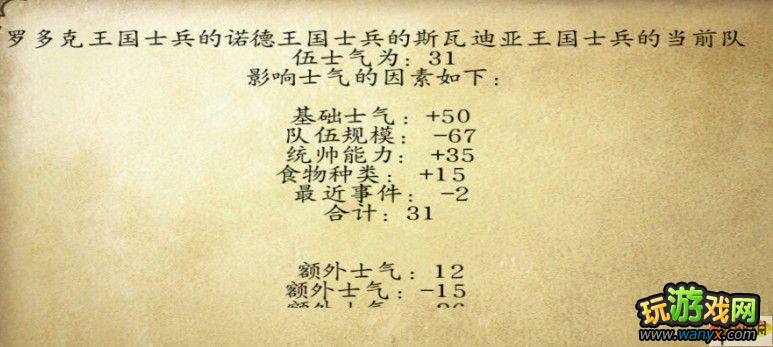 罗多克王国士兵的诺德王国士兵的斯瓦迪亚王国士兵的当前队
伍士气为：31
影响士气的因素如下：
基础士气：+50
队伍规模： -67
统帅能力： +35
食物种类： +15
最近事件： -2
合计：31
额外士气：12
额外士气：-15
玩游戏网
www.wanyx.com